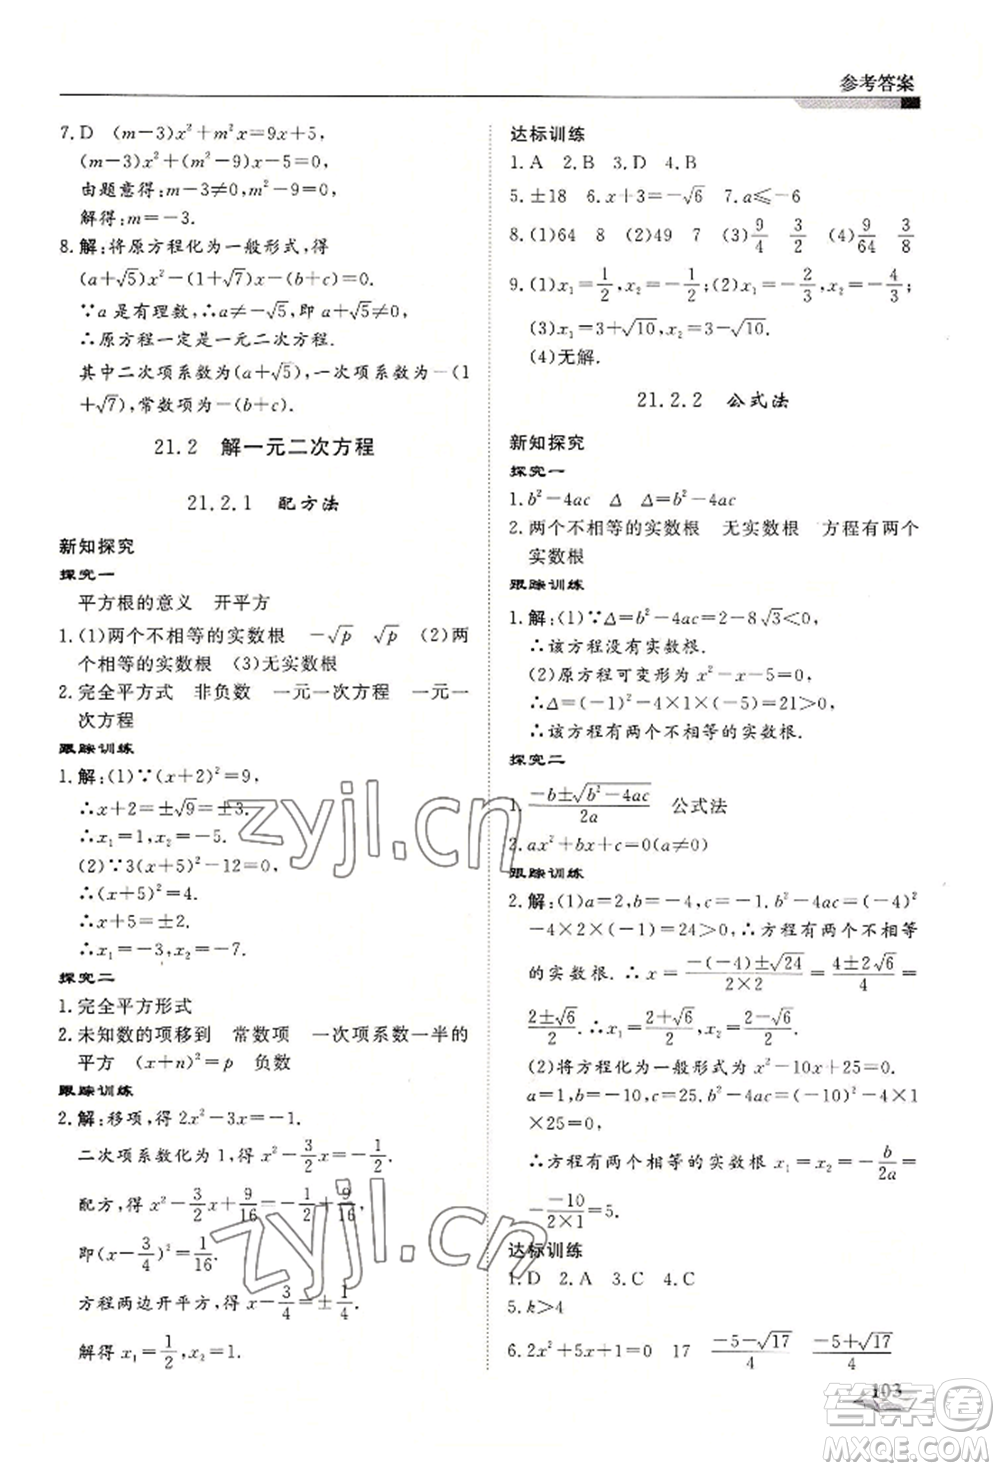 参考答案
7. D (m-3)x²+m²x=9x+5,
(m-3)x²+(m²-9)x-5=0,
由题意得:m-3≠0,m²-9=0,
解得:m=-3.
8. 解:将原方程化为一般形式,得
(a+√5)x²-(1+√7)x-(b+c)=0.
∵a是有理数,∴a≠-√5,即a+√5≠0,
∴原方程一定是一元二次方程.
其中二次项系数为(a+√5),一次项系数为-(1
+√7),常数项为-(b+c).
21.2 解一元二次方程
21.2.1 配方法
新知探究
探究一
平方根的意义 开平方
1. (1)两个不相等的实数根 -√p √p (2)两
个相等的实数根 (3)无实数根
2. 完全平方式 非负数 一元一次方程 一元一
次方程
跟踪训练
1. 解:(1)∵(x+2)²=9,
∴x+2=±√9=±3.
∴x₁=1,x₂=-5.
(2)∵3(x+5)²-12=0,
∴(x+5)²=4.
∴x+5=±2.
∴x₁=-3,x₂=-7.
探究二
1. 完全平方形式
2. 未知数的项移到 常数项 一次项系数一半的
平方 (x+n)²=p 负数
跟踪训练
2. 解:移项,得 2x²-3x=-1.
二次项系数化为1,得 x²-3/2x=-1/2.
配方,得 x²-3/2x+9/16=-1/2+9/16,
即(x-3/4)²=1/16.
方程两边开平方,得 x-3/4=±1/4.
解得 x₁=1/2,x₂=1.
达标训练
1. A 2. B 3. D 4. B
5. ±18 6. x+3=-√6 7. a≤-6
8. (1)64 8 (2)49 7 (3)9/4 3/2 (4)9/64 3/8
9. (1)x₁=1/2,x₂=-1/2;(2)x₁=-2/3,x₂=-4/3;
(3)x₁=3+√10,x₂=3-√10.
(4)无解.
21.2.2 公式法
新知探究
探究一
1. b²-4ac Δ Δ=b²-4ac
2. 两个不相等的实数根 无实数根 方程有两个
实数根
跟踪训练
1. 解:(1)∵Δ=b²-4ac=2-8√3<0,
∴该方程没有实数根.
(2)原方程可变形为 x²-x-5=0,
∴Δ=(-1)²-4×1×(-5)=21>0,
∴该方程有两个不相等的实数根.
探究二
1. (-b±√(b²-4ac))/2a 公式法
2. ax²+bx+c=0(a≠0)
跟踪训练
2. 解:(1)a=2,b=-4,c=-1. b²-4ac=(-4)²
-4×2×(-1)=24>0,∴方程有两个不相等
的实数根.∴x=(-(-4)±√24)/(2×2)=(4±2√6)/4=
(2±√6)/2.∴x₁=(2+√6)/2,x₂=(2-√6)/2.
(2)将方程化为一般形式 x²-10x+25=0.
a=1,b=-10,c=25. b²-4ac=(-10)²-4×1
×25=0.
∴方程有两个相等的实数根 x₁=x₂=-b/2a=
-(-10)/(2×1)=5.
达标训练
1. D 2. A 3. C 4. C
5. k>4
6. 2x²+5x+1=0 17 (-5-√17)/4 (-5+√17)/4
103
zyjl.cn
zyjl.cn
答案圈
MXQE.COM